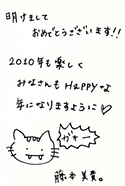 明けまして
おめでとうございます!!
2010年も楽しく
みなさんもHAPPYな
年になりますように♡
ガオー
藤本美貴。